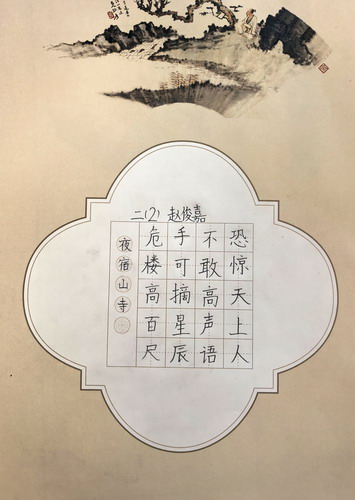 二(2) 赵俊嘉
夜宿山寺
危楼高百尺
手可摘星辰
不敢高声语
恐惊天上人